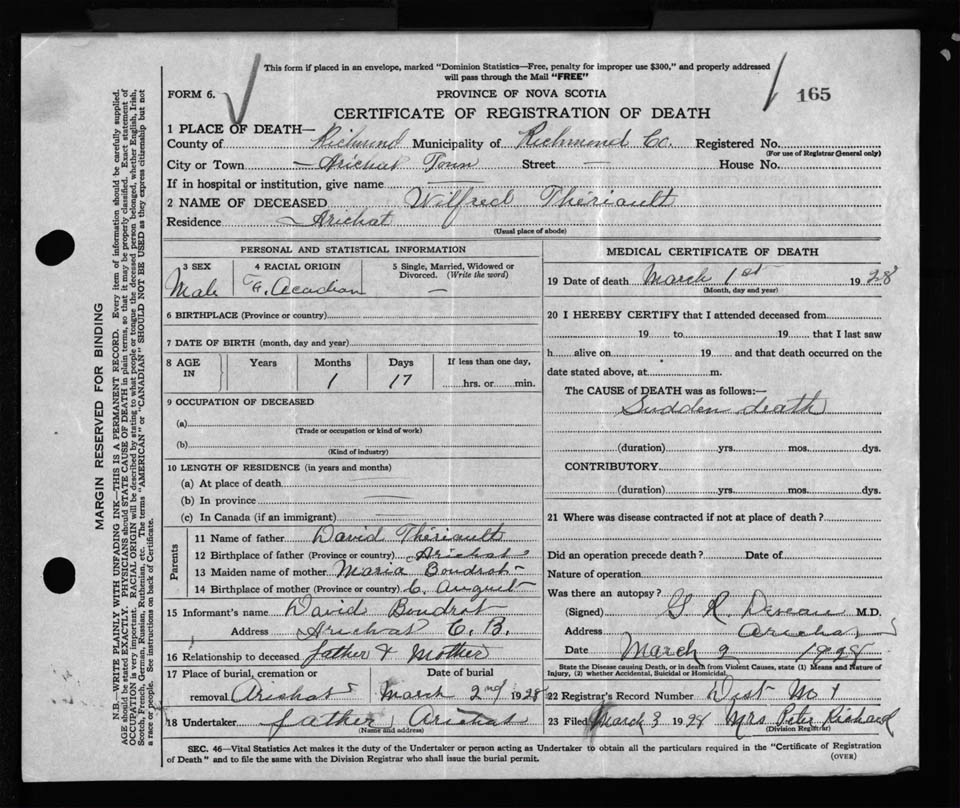 This form if placed in an envelope, marked "Dominion Statistics—Free, penalty for improper use $300," and properly addressed
will pass through the Mail "FREE"
FORM 6.
PROVINCE OF NOVA SCOTIA
165
CERTIFICATE OF REGISTRATION OF DEATH
1 PLACE OF DEATH—
County of Richmond Municipality of Richmond Co. Registered No.
(For use of Registrar General only)
City or Town — Arichat Town Street — House No.
If in hospital or institution, give name —
2 NAME OF DECEASED Wilfred Thériault
Residence — Arichat
(Usual place of abode)
PERSONAL AND STATISTICAL INFORMATION
3 SEX 4 RACIAL ORIGIN 5 Single, Married, Widowed or
Divorced. (Write the word)
Male F. Acadian —
6 BIRTHPLACE (Province or country)
7 DATE OF BIRTH (month, day and year)
8 AGE Years Months Days If less than one day,
IN 1 17 hrs. or min.
9 OCCUPATION OF DECEASED
(a)
(Trade or occupation or kind of work)
(b)
(Kind of industry)
10 LENGTH OF RESIDENCE (in years and months)
(a) At place of death
(b) In province
(c) In Canada (if an immigrant)
Parents
11 Name of father David Thériault
12 Birthplace of father (Province or country) Arichat
13 Maiden name of mother Maria Boudrot
14 Birthplace of mother (Province or country) C. August
15 Informant's name David Boudrot
Address Arichat C. B.
16 Relationship to deceased father & Mother
17 Place of burial, cremation or Date of burial
removal Arichat March 2nd 1928
18 Undertaker father Arichat
(Name and address)
MEDICAL CERTIFICATE OF DEATH
19 Date of death March 1st 1928
(Month, day and year)
20 I HEREBY CERTIFY that I attended deceased from
19 to 19 that I last saw
h alive on 19 and that death occurred on the
date stated above, at m.
The CAUSE of DEATH was as follows:—
Sudden death
(duration) yrs. mos. dys.
CONTRIBUTORY
(duration) yrs. mos. dys.
21 Where was disease contracted if not at place of death?
Did an operation precede death? Date of
Nature of operation
Was there an autopsy?
(Signed) G R Deveau M.D.
Address Arichat
Date March 2 1928
State the Disease causing Death, or in death from Violent Causes, state (1) Means and Nature of
Injury, (2) whether Accidental, Suicidal or Homicidal.
22 Registrar's Record Number Dist No 1
23 Filed March 3 1928 Mrs Peter Richard
(Division Registrar)
SEC. 46—Vital Statistics Act makes it the duty of the Undertaker or person acting as Undertaker to obtain all the particulars required in the "Certificate of Registration
of Death" and to file the same with the Division Registrar who shall issue the burial permit.
(OVER)
MARGIN RESERVED FOR BINDING
N.B.—WRITE PLAINLY WITH UNFADING INK—THIS IS A PERMANENT RECORD. Every item of information should be carefully supplied.
AGE should be stated EXACTLY. PHYSICIANS should STATE CAUSE OF DEATH in plain terms, so that it may be properly classified. Exact statement of
OCCUPATION is very important. RACIAL ORIGIN will be described by stating to what people or tongue the deceased person belonged, whether English, Irish,
Scotch, French, German, Russian, Ruthenian, etc. The terms "AMERICAN" or "CANADIAN" SHOULD NOT BE USED as they express citizenship but not
a race or people. See instructions on back of Certificate.